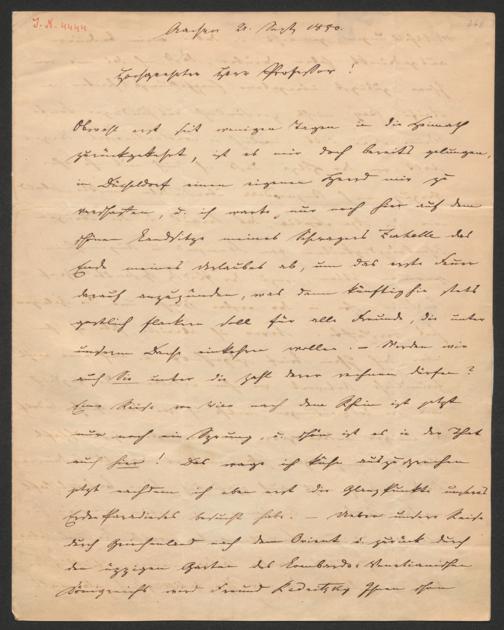 J. N. 4444
Aachen 2. Sept 1850.
Hochgeehrter Herr Professor!
Obwohl erst seit wenigen Tagen in die Heimath
zurückgekehrt, ist es mir doch bereits gelungen,
in Düsseldorf einen eigenen Heerd mir zu
verschaffen, u. ich warte nur noch hier auf dem
schönen Landsitze meines Schwagers das
Ende meines Urlaubes ab, um das erste Feuer
darauf anzuzünden, was dann künftighin stets
gastlich flackern soll für alle Freunde, die unter
unserem Dache einkehren wollen. – Werden wir
auch Sie unter die Zahl derer rechnen dürfen?
Eine Reise von Wien nach dem Rhein ist jetzt
nur noch ein Sprung, u. schön ist es in der That
auch hier! Das wage ich kühn auszusprechen
jetzt nachdem ich eben erst die Glanzpunkte unseres
Erdenparadieses besucht habe. – Ueber unsere Reise
durch Griechenland nach dem Orient u. zurück durch
den üppigen Garten des Lombardo-Venetianischen
Königreichs wird Freund Ihnen schon